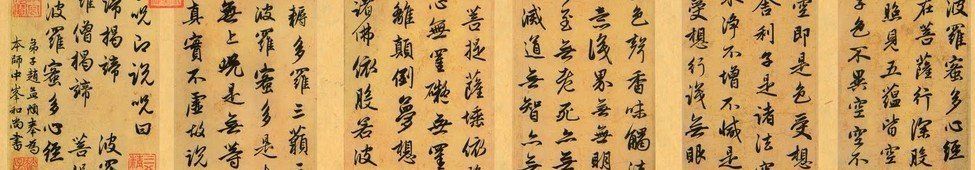 波羅蜜多心經
在菩薩行深般
照見五蘊皆空
子色不異空空不
空即是色受想
舍利子是諸法空
不淨不增不滅是
受想行識無眼
色聲香味觸法
意識界無無明
至無老死亦無
滅道無智亦無
菩提薩埵依
心無罣礙無罣
離顛倒夢想
諸佛依般若波
耨多羅三藐三
波羅蜜多是
無上呪是無等
真實不虛故說
呪即說呪曰
諦揭諦 波羅
羅僧揭諦 菩提
波羅蜜多心經
弟子趙孟頫奉為
本師中峯和尚書